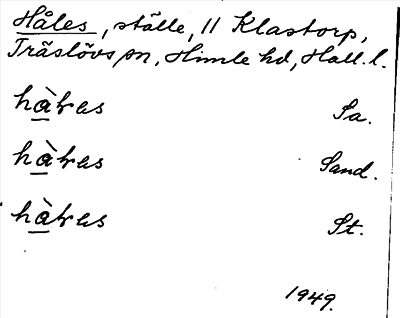 Håles, ställe, 11 Klastorp,
Träslövs sn, Himle hd, Hall. l.
Sa.
Sand.
St.
1949.